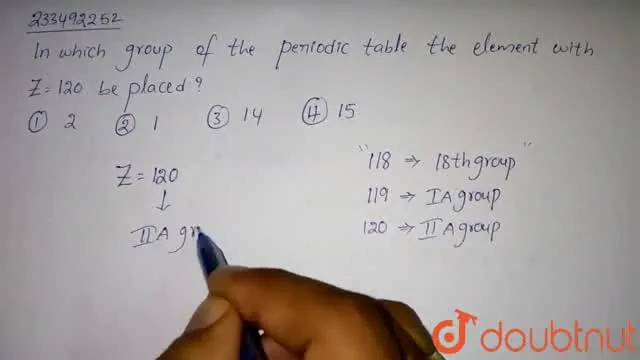 233492252
In which group of the periodic table the element with
Z=120 be placed?
① 2 ② 1 ③ 14 ④ 15
Z = 120
↓
IIA gr
"118 ⇒ 18th group"
119 ⇒ IA group
120 ⇒ IIA group
doubtnut